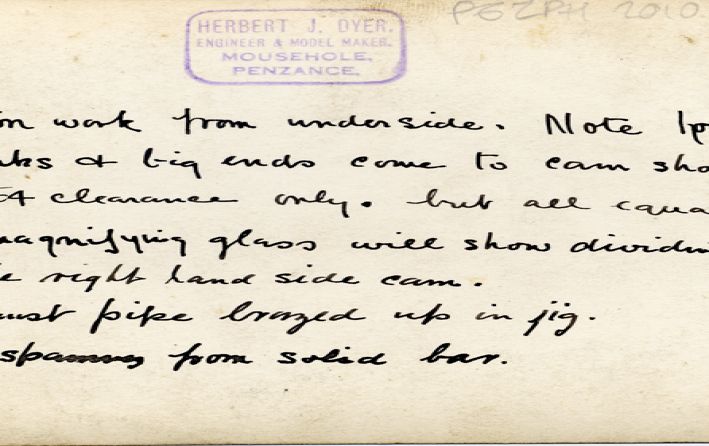 PEZPH 2010
HERBERT J. DYER.
ENGINEER & MODEL MAKER.
MOUSEHOLE,
PENZANCE.
on work from underside. Note
& big ends come to cam sho
clearance only. but all equa
magnifying glass will show dividin
right hand side cam.
ust pipe brazed up in jig.
from solid bar.